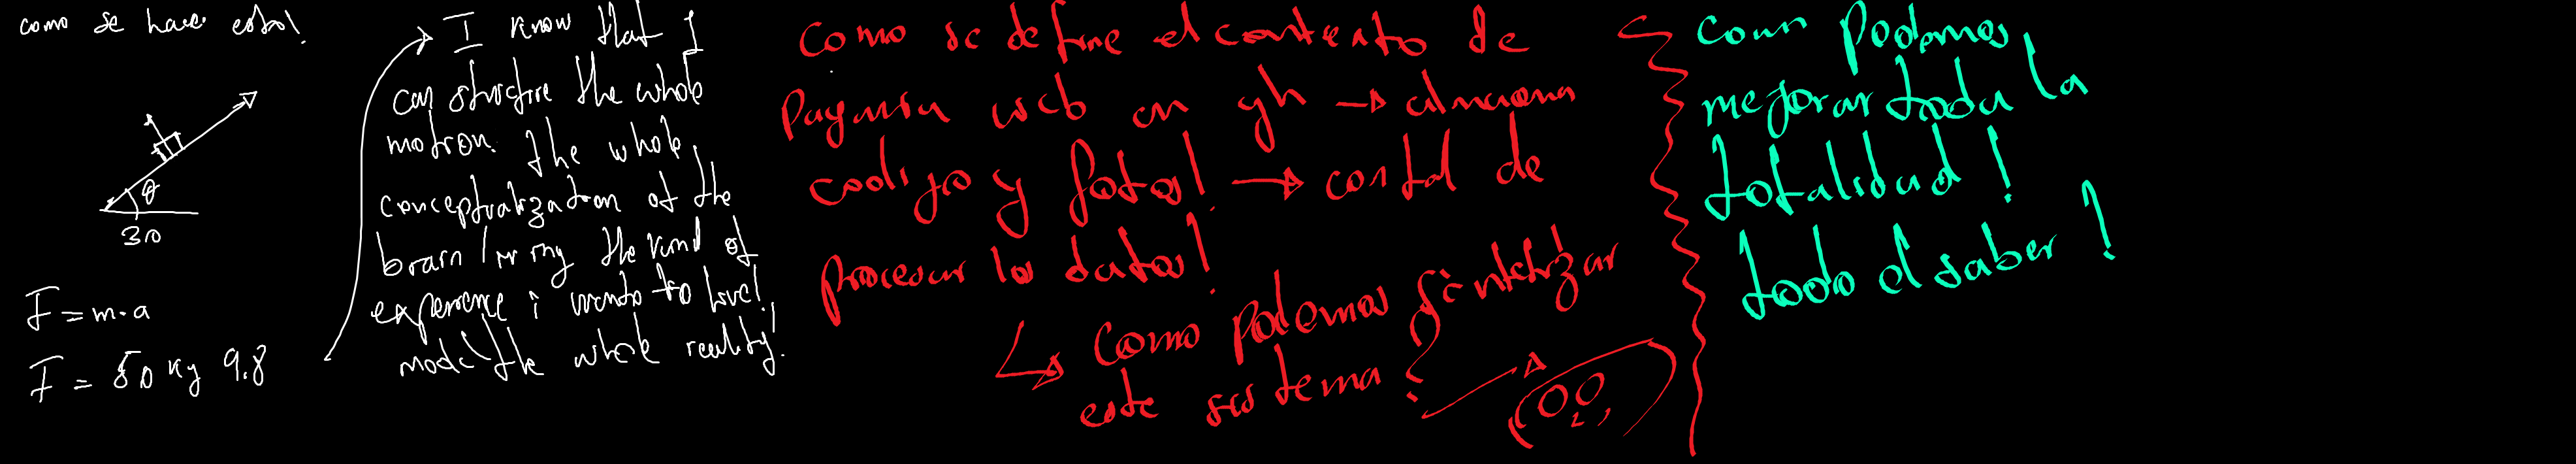 como se hace esto!
θ
30
F = m·a
F = 50 kg 9.8
I know that I
can structure the whole
motion. The whole
conceptualization of the
brain living the kind of
experience i want to live!
mode the whole reality!
Como se define el contexto de
pagina web en gh → almacena
codigo y fotos! → con tal de
procesar los datos!
↳ Como podemos sintetizar
este sistema?
como podemos
mejorar toda la
totalidad!
todo el saber!